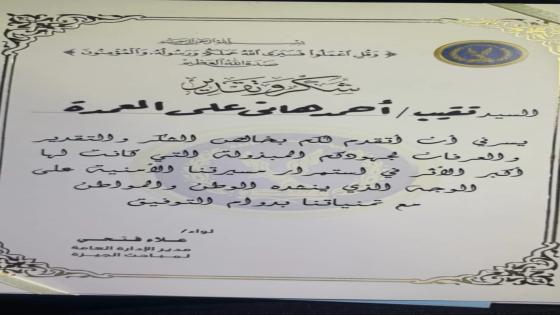 بسم الله الرحمن الرحيم
﴿ وَقُلِ اعْمَلُوا فَسَيَرَى اللَّهُ عَمَلَكُمْ وَرَسُولُهُ وَالْمُؤْمِنُونَ ﴾
صدق الله العظيم
شكر وتقدير
السيد نقيب / أحمد هانى على العمدة
يسرني أن أتقدم لكم بخالص الشكر والتقدير
والعرفان بمجهودكم المبذولة التي كانت لها
أكبر الأثر في استمرار مسيرتنا الأمنية على
الوجه الذي ينشده الوطن والمواطن
مع تمنياتنا بدوام التوفيق
لواء/
علاء فتحي
مدير الإدارة العامة
لمباحث الجيزة